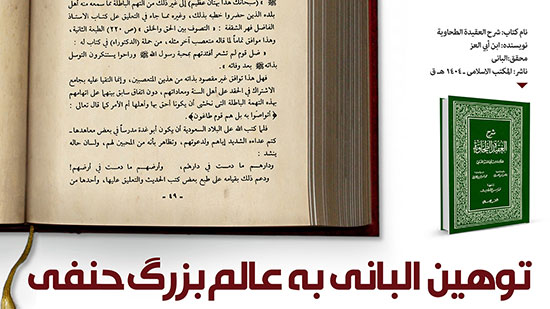 (سبحانك هذا بهتان عظيم) إلى غير ذلك من التهم الباطلة مما سمعه منه أهل
بلده الذين حضروا خطبه بذلك، وغيره مما جاء في التعليق على كتاب الأستاذ
الفاضل فهر الشقفة : «التصوف بين الحق والخلق» (ص ٢٢٠ الطبعة الثانية)،
وهذا موافق تماماً لما قاله متعصب آخر مثله، من حملة (الدكتوراه) في كتاب له :
« ضل قوم لم تشعر أفئدتهم بمحبة رسول الله ﷺ وراحوا يستنكرون التوسل
بذاته ﷺ بعد وفاته ».
فهل هذا توافق غير مقصود بذاته من هذين المتعصبين، وإنما التقيا عليه بجامع
الاشتراك في الحقد على أهل السنة ومعاداتهم، دون اتفاق سابق بينهما على اتهامهم
بهذه التهمة الباطلة التي نخشى أن يكونا أحق بها وأهلها أم الأمر كما قال تعالى :
﴿أتواصوا به بل هم قوم طاغون﴾.
فلما كتب الله على البلاد السعودية أن يكون أبو غدة مدرساً في بعض معاهدها،
كتم عداءه الشديد إياهم ولدعوتهم، وتظاهر بأنه من المحبين لهم، ولسان حاله
ينشد :
ودارهم ما دمت في دارهم، وأرضهم ما دمت في أرضهم!
ودعم ذلك بقيامه على طبع بعض كتب الحديث والتعليق عليها، وأحدها من
- ٤٩ -
نام کتاب: شرح العقيدة الطحاوية
نویسنده: ابن أبي العز
محقق: البانی
ناشر: المکتب الاسلامی - ١٤٠٤ هـ ق
شرح
العقيدة الطحاوية
توهین البانی به عالم بزرگ حنفی